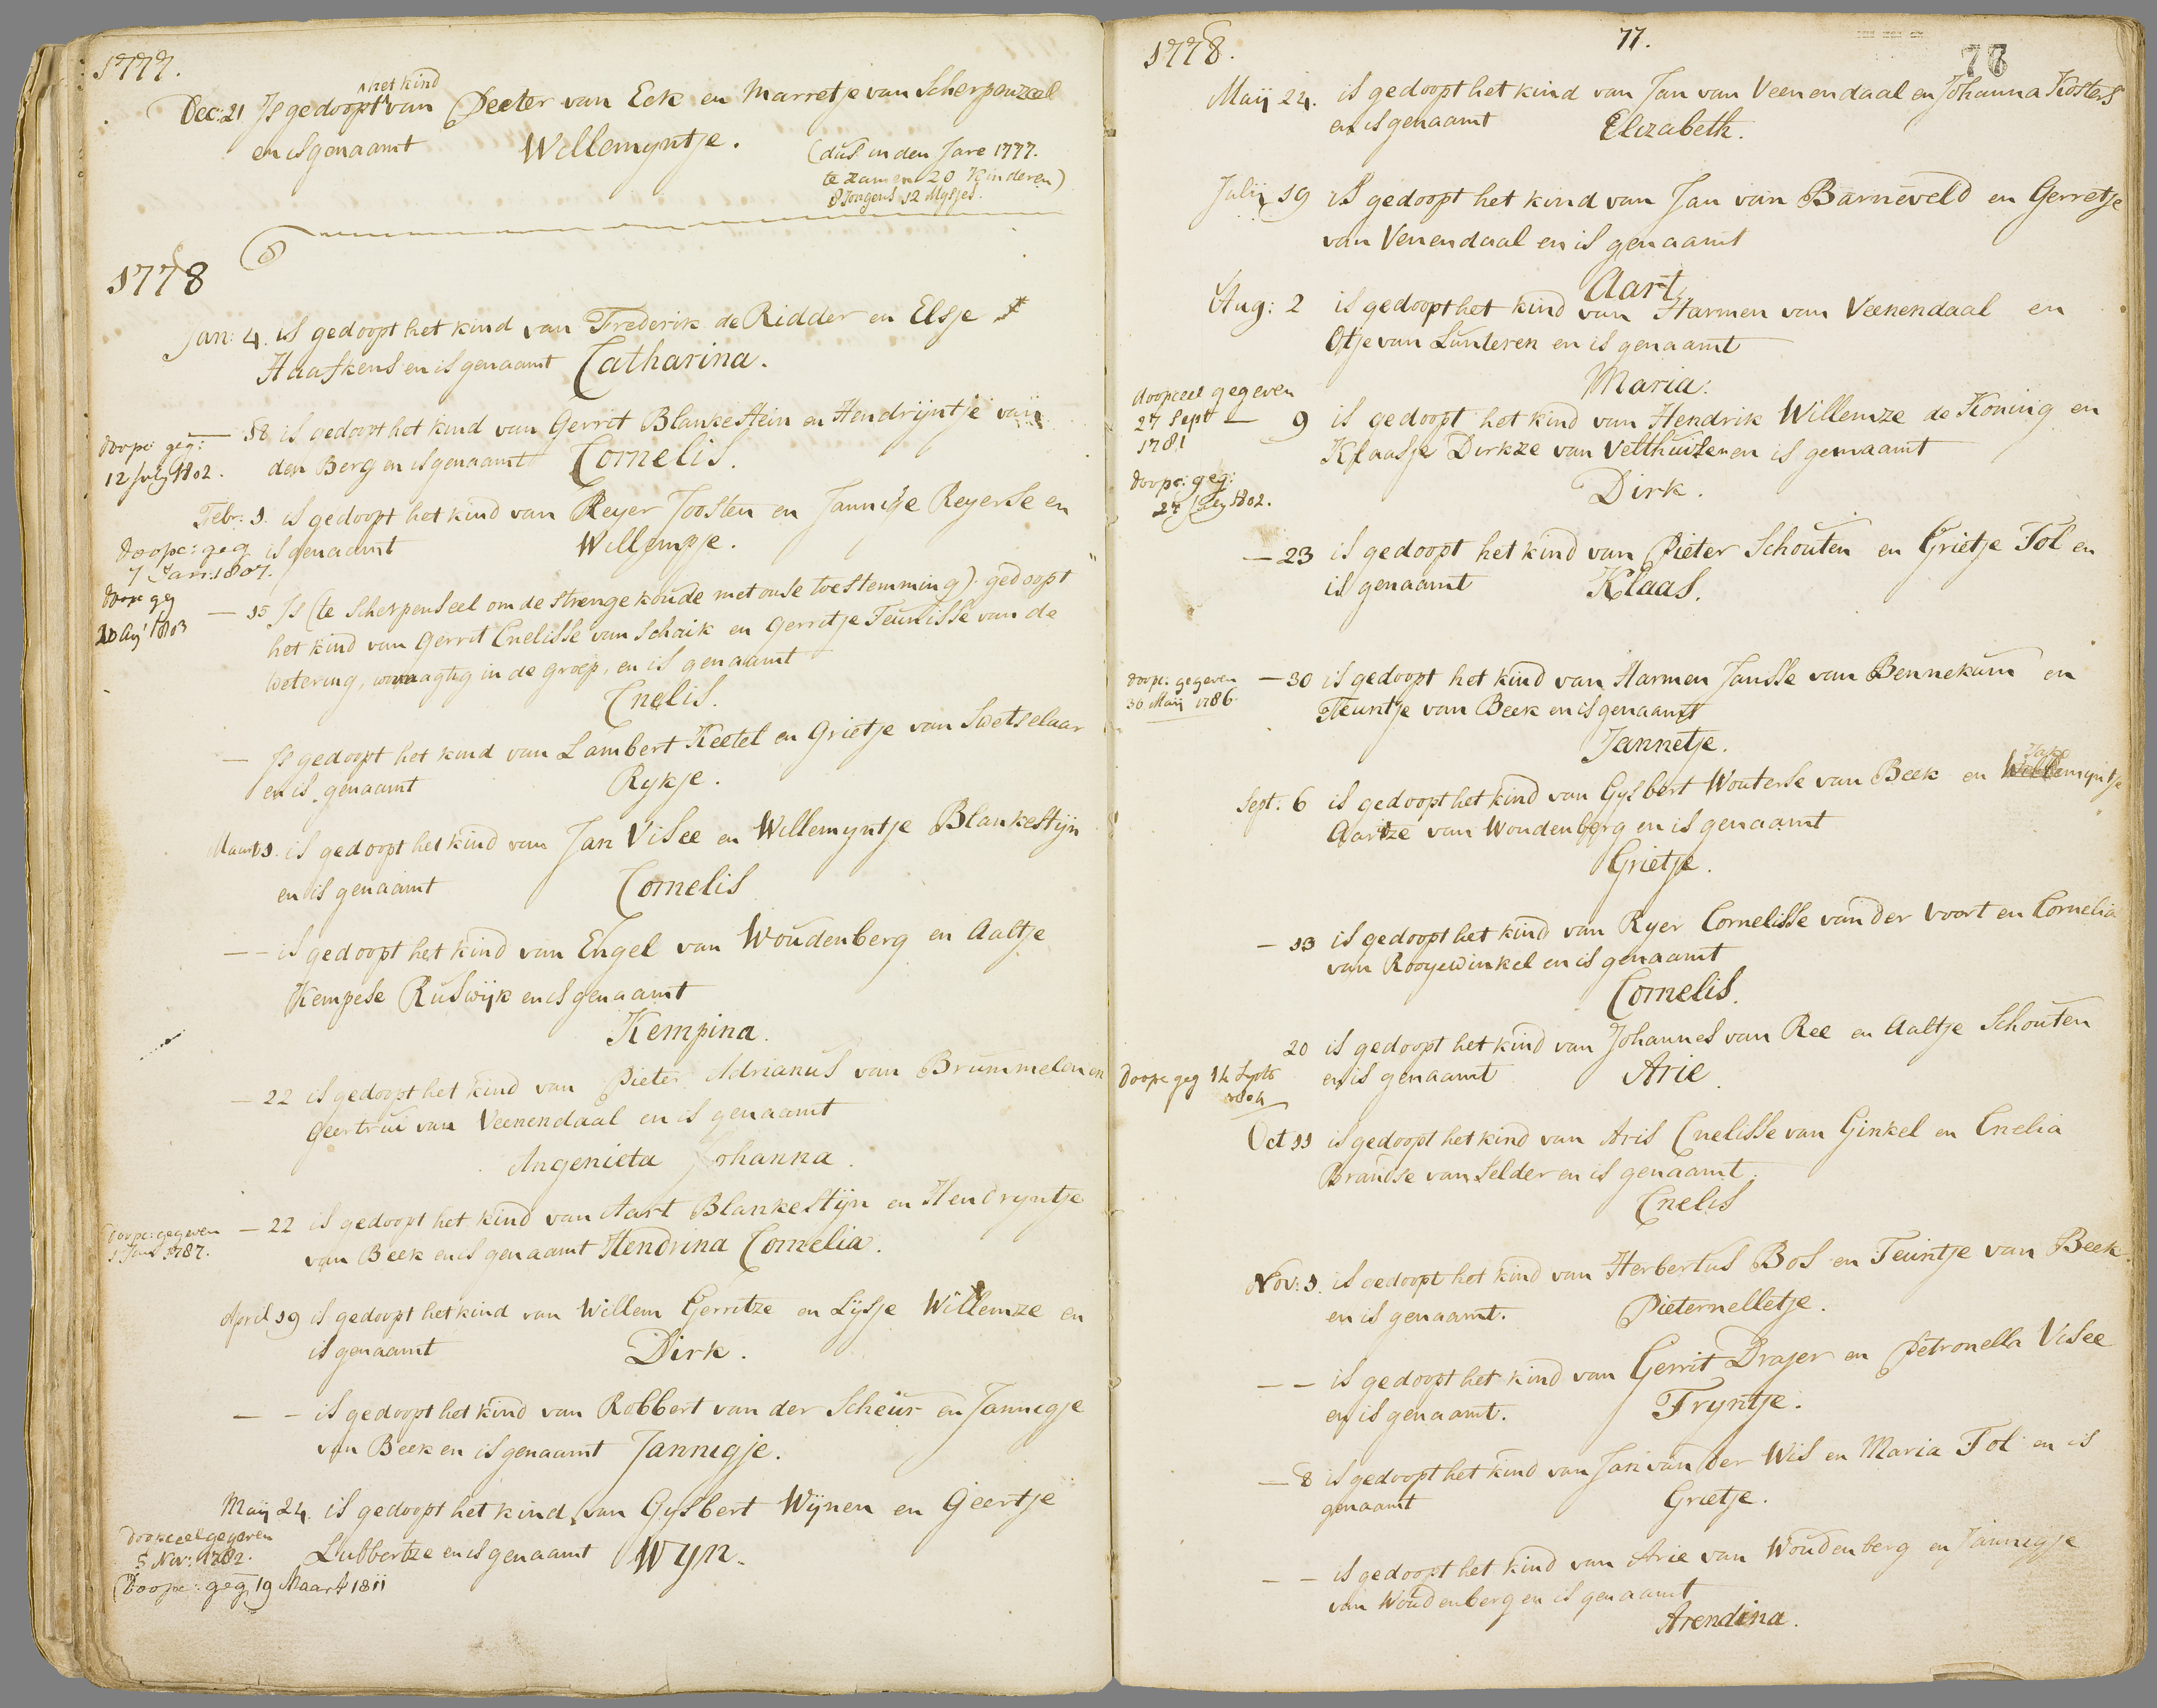 1777.
Dec: 21 Is gedoopt het kind van Peeter van Eck en Marretje van Scherpenzeel
en is genaamt Willemyntje.
(dus in den Jare 1777.
te zamen 20 Kinderen)
8 Jongens 12 Mysjes.
1778
Jan: 4. is gedoopt het kind van Frederik de Ridder en Elsje
Haafkens en is genaamt Catharina.
doopc: geg:
12 July 1802.
— 18 is gedoopt het kind van Gerrit Blankestein en Hendrijntje van
den Berg en is genaamt Cornelis.
Febr: 1. is gedoopt het kind van Reyer Joosten en Jannitje Reyerse en
is genaamt Willempje.
doopc: geg
7 Jan: 1807.
doopc geg
20 Aug 1803
— 15 Is (te Scherpenseel om de strenge koude met onse toestemming) gedoopt
het kind van Gerrit Cnelisse van Schaik en Gerritje Teunisse van de
Wetering, woonagtig in de groep, en is genaamt
Cnelis.
— Is gedoopt het kind van Lambert Keetel en Grietje van Swetselaar
en is genaamt Rykje.
Maart 1. is gedoopt het kind van Jan Visee en Willemyntje Blankestijn
en is genaamt Cornelis
— – is gedoopt het kind van Engel van Woudenberg en Aaltje
Kempese Ruswijk en is genaamt
Kempina.
— 22 is gedoopt het kind van Pieter Adrianus van Brummelen en
Geertrui van Veenendaal en is genaamt
Angenieta Johanna.
doopc: gegeven
1 Jun 1787.
— 22 is gedoopt het kind van Aart Blankestijn en Hendryntje
van Beek en is genaamt Hendrina Cornelia.
April 19 is gedoopt het kind van Willem Gerritze en Lijsje Willemze en
is genaamt Dirk.
— – is gedoopt het kind van Robbert van der Scheur en Jannigje
van Beek en is genaamt Jannigje.
Maij 24. is gedoopt het kind van Gysbert Wijnen en Geertje
Lubbertze en is genaamt Wyn.
doopceel gegeven
5 Nov: 1782.
Doopc: geg 19 Maart 1811
1778.
77.
78
Maij 24. is gedoopt het kind van Jan van Veenendaal en Johanna Kosters
en is genaamt Elizabeth.
Julij 19 is gedoopt het kind van Jan van Barneveld en Gerretje
van Venendaal en is genaamt
Aart,
Aug: 2 is gedoopt het kind van Harmen van Veenendaal en
Otje van Lunteren en is genaamt
Maria.
doopceel gegeven
27 Sept
1781
— 9 is gedoopt het kind van Hendrik Willemze de Koning en
Klaasje Dirkze van Velthuizen en is genaamt
Dirk.
doopc: geg:
27 July 1802.
— 23 is gedoopt het kind van Pieter Schouten en Grietje Tol en
is genaamt Klaas.
doopc: gegeven
30 Maij 1786.
— 30 is gedoopt het kind van Harmen Jansse van Bennekum en
Teuntje van Beek en is genaamt
Jannetje.
Sept. 6 is gedoopt het kind van Gysbert Wouterse van Beek en Willemyntje
Aartze van Woudenberg en is genaamt
Grietje.
— 13 is gedoopt het kind van Ryer Cornelisse van der Voort en Cornelia
van Rooyewinkel en is genaamt
Cornelis.
20 is gedoopt het kind van Johannes van Ree en Aaltje Schouten
en is genaamt Arie.
doopc geg 14 Septb
1804
Oct 11 is gedoopt het kind van Aris Cnelisse van Ginkel en Cnelia
Brandse van Selder en is genaamt
Cnelis
Nov: 1. is gedoopt het kind van Herbertus Bos en Teuntje van Beek
en is genaamt. Pieternelletje.
— – is gedoopt het kind van Gerrit Drajer en Petronella Visee
en is genaamt. Tryntje.
— 8 is gedoopt het kind van Jan van der Wis en Maria Tol en is
genaamt Grietje.
— – is gedoopt het kind van Arie van Woudenberg en Jannigje
van Woudenberg en is genaamt
Arendina.